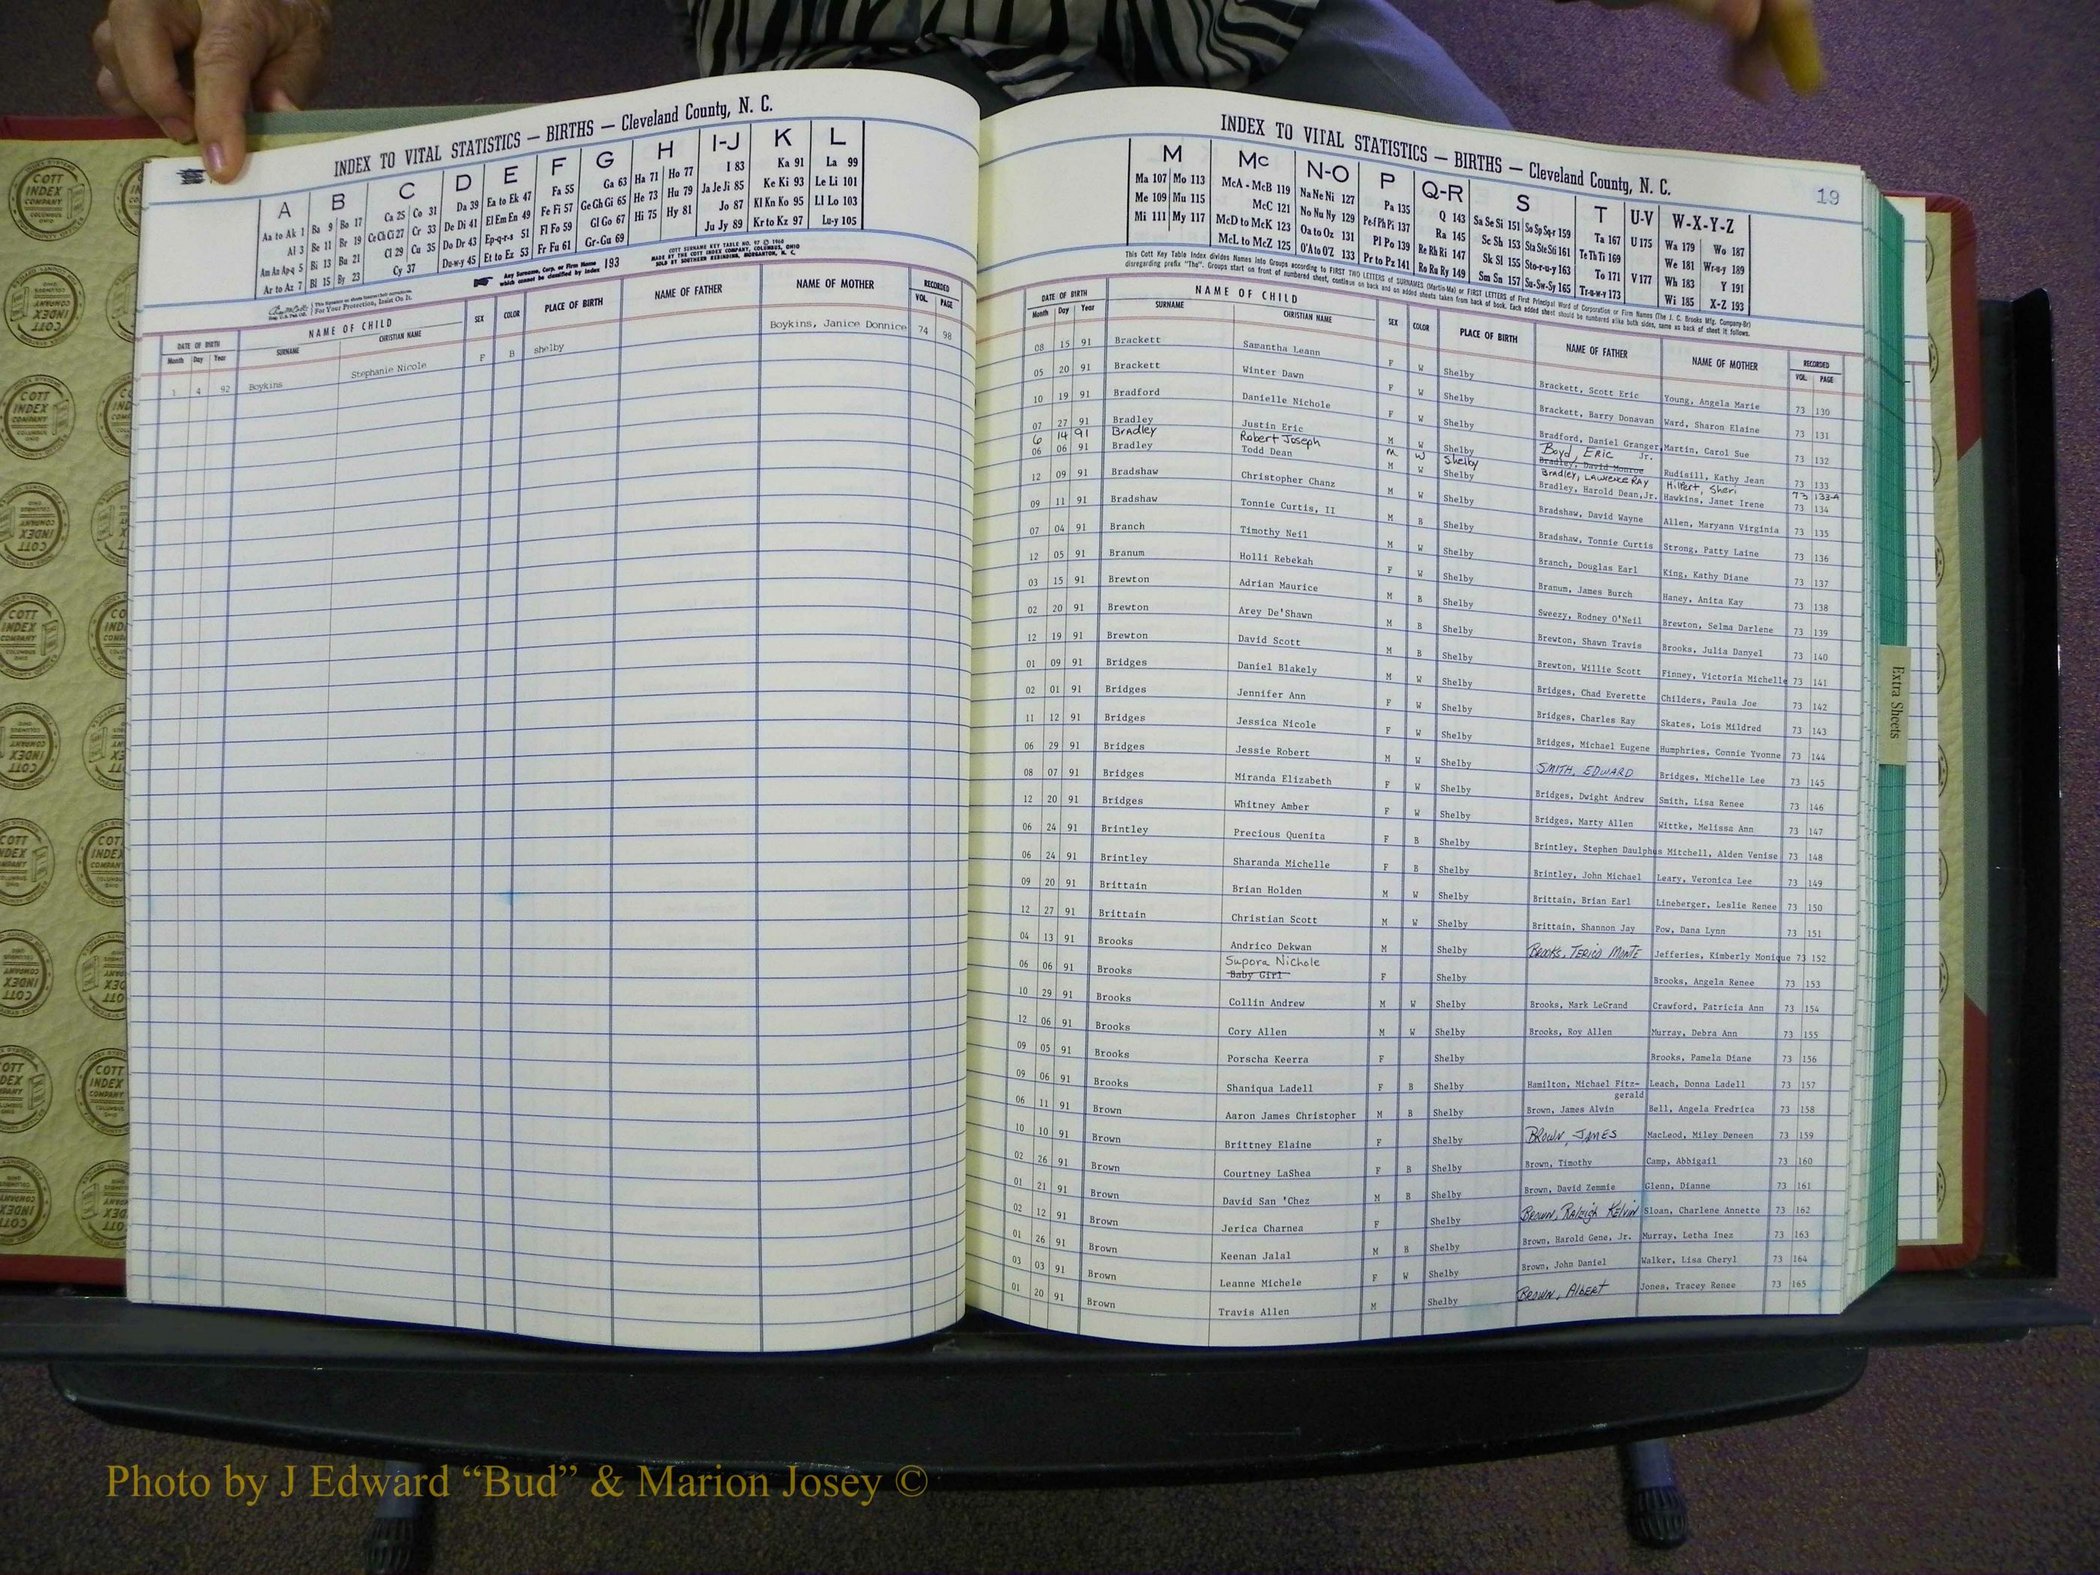 INDEX TO VITAL STATISTICS — BIRTHS — Cleveland County, N. C.
A B C D E F G H I-J K L
Aa to Ak 1 Ba 9 Bo 17 Ca 25 Co 31 Da 39 Ea to Ek 47 Fa 55 Ga 63 Ha 71 Ho 77 I 83 Ka 91 La 99
Al 3 Be 11 Br 19 Ce Ch Ci 27 Cr 33 De Di 41 El Em En 49 Fe Fi 57 Ge Gh Gi 65 He 73 Hu 79 Ja Je Ji 85 Ke Ki 93 Le Li 101
Am An Ap-q 5 Bi 13 Bu 21 Cl 29 Cu 35 Do Dr 43 Ep-q-r-s 51 Fl Fo 59 Gl Go 67 Hi 75 Hy 81 Jo 87 Kl Kn Ko 95 Ll Lo 103
Ar to Az 7 Bl 15 By 23 Cy 37 Du-w-y 45 Et to Ez 53 Fr Fu 61 Gr-Gu 69 Ju Jy 89 Kr to Kz 97 Lu-y 105
Any Surname, Corp. or Firm Name which cannot be classified by index 193
COTT SURNAME KEY TABLE NO. 97 © 1960
MADE BY THE COTT INDEX COMPANY, COLUMBUS, OHIO
SOLD BY SOUTHERN REBINDING, MORGANTON, N. C.
For Your Protection, Insist On It.
DATE OF BIRTH NAME OF CHILD SEX COLOR PLACE OF BIRTH NAME OF FATHER NAME OF MOTHER RECORDED
Month Day Year SURNAME CHRISTIAN NAME VOL. PAGE
1 4 92 Boykins Stephanie Nicole F B shelby Boykins, Janice Donnice 74 98
INDEX TO VITAL STATISTICS — BIRTHS — Cleveland County, N. C.
19
M Mc N-O P Q-R S T U-V W-X-Y-Z
Ma 107 Mo 113 McA - McB 119 Na Ne Ni 127 Pa 135 Q 143 Sa Se Si 151 So Sp Sq-r 159 Ta 167 U 175 Wa 179 Wo 187
Me 109 Mu 115 McC 121 No Nu Ny 129 Pe-f Ph Pi 137 Ra 145 Sc Sh 153 Sta Ste Sti 161 Te Th Ti 169 We 181 Wr-u-y 189
Mi 111 My 117 McD to McK 123 Oa to Oz 131 Pl Po 139 Re Rh Ri 147 Sk Sl 155 Sto-r-u-y 163 To 171 V 177 Wh 183 Y 191
McL to McZ 125 O'A to O'Z 133 Pr to Pz 141 Ro Ru Ry 149 Sm Sn 157 Su-Sw-Sy 165 Tr-u-w-y 173 Wi 185 X-Z 193
This Cott Key Table Index divides Names into Groups according to FIRST TWO LETTERS of SURNAMES (Martin-Ma) or FIRST LETTERS of First Principal Word of Corporation or Firm Names (The J. C. Brooks Mfg. Company-Br)
disregarding prefix "The". Groups start on front of numbered sheet, continue on back and on added sheets taken from back of book. Each added sheet should be numbered alike both sides, same as back of sheet it follows.
DATE OF BIRTH NAME OF CHILD SEX COLOR PLACE OF BIRTH NAME OF FATHER NAME OF MOTHER RECORDED
Month Day Year SURNAME CHRISTIAN NAME VOL. PAGE
08 15 91 Brackett Samantha Leann F W Shelby Brackett, Scott Eric Young, Angela Marie 73 130
05 20 91 Brackett Winter Dawn F W Shelby Brackett, Barry Donavan Ward, Sharon Elaine 73 131
10 19 91 Bradford Danielle Nichole F W Shelby Bradford, Daniel Granger, Jr. Martin, Carol Sue 73 132
07 27 91 Bradley Justin Eric M W Shelby Boyd, Eric Bradley, David Monroe Rudisill, Kathy Jean 73 133
6 14 91 Bradley Robert Joseph M W Shelby Bradley, Lawrence Ray Hilpert, Sheri 73 133-A
06 06 91 Bradley Todd Dean M W Shelby Bradley, Harold Dean, Jr. Hawkins, Janet Irene 73 134
12 09 91 Bradshaw Christopher Chanz M W Shelby Bradshaw, David Wayne Allen, Maryann Virginia 73 135
09 11 91 Bradshaw Tonnie Curtis, II M B Shelby Bradshaw, Tonnie Curtis Strong, Patty Laine 73 136
07 04 91 Branch Timothy Neil M W Shelby Branch, Douglas Earl King, Kathy Diane 73 137
12 05 91 Branum Holli Rebekah F W Shelby Branum, James Burch Haney, Anita Kay 73 138
03 15 91 Brewton Adrian Maurice M B Shelby Sweezy, Rodney O'Neil Brewton, Selma Darlene 73 139
02 20 91 Brewton Arey De'Shawn M B Shelby Brewton, Shawn Travis Brooks, Julia Danyel 73 140
12 19 91 Brewton David Scott M B Shelby Brewton, Willie Scott Finney, Victoria Michelle 73 141
01 09 91 Bridges Daniel Blakely M W Shelby Bridges, Chad Everette Childers, Paula Joe 73 142
02 01 91 Bridges Jennifer Ann F W Shelby Bridges, Charles Ray Skates, Lois Mildred 73 143
11 12 91 Bridges Jessica Nicole F W Shelby Bridges, Michael Eugene Humphries, Connie Yvonne 73 144
06 29 91 Bridges Jessie Robert M W Shelby SMITH, EDWARD Bridges, Michelle Lee 73 145
08 07 91 Bridges Miranda Elizabeth F W Shelby Bridges, Dwight Andrew Smith, Lisa Renee 73 146
12 20 91 Bridges Whitney Amber F W Shelby Bridges, Marty Allen Wittke, Melissa Ann 73 147
06 24 91 Brintley Precious Quenita F B Shelby Brintley, Stephen Daulphus Mitchell, Alden Venise 73 148
06 24 91 Brintley Sharanda Michelle F B Shelby Brintley, John Michael Leary, Veronica Lee 73 149
09 20 91 Brittain Brian Holden M W Shelby Brittain, Brian Earl Lineberger, Leslie Renee 73 150
12 27 91 Brittain Christian Scott M W Shelby Brittain, Shannon Jay Pow, Dana Lynn 73 151
04 13 91 Brooks Andrico Dekwan M Shelby Brooks, Terico Monte Jefferies, Kimberly Monique 73 152
06 06 91 Brooks Supora Nichole Baby Girl F Shelby Brooks, Angela Renee 73 153
10 29 91 Brooks Collin Andrew M W Shelby Brooks, Mark LeGrand Crawford, Patricia Ann 73 154
12 06 91 Brooks Cory Allen M W Shelby Brooks, Roy Allen Murray, Debra Ann 73 155
09 05 91 Brooks Porscha Keerra F Shelby Brooks, Pamela Diane 73 156
09 06 91 Brooks Shaniqua Ladell F B Shelby Hamilton, Michael Fitz-gerald Leach, Donna Ladell 73 157
06 11 91 Brown Aaron James Christopher M B Shelby Brown, James Alvin Bell, Angela Fredrica 73 158
10 10 91 Brown Brittney Elaine F Shelby Brown, James MacLeod, Miley Deneen 73 159
02 26 91 Brown Courtney LaShea F B Shelby Brown, Timothy Camp, Abbigail 73 160
01 21 91 Brown David San 'Chez M B Shelby Brown, David Zemmie Glenn, Dianne 73 161
02 12 91 Brown Jerica Charnea F Shelby Brown, Raleigh Kelvin Sloan, Charlene Annette 73 162
01 26 91 Brown Keenan Jalal M B Shelby Brown, Harold Gene, Jr. Murray, Letha Inez 73 163
03 03 91 Brown Leanne Michele F W Shelby Brown, John Daniel Walker, Lisa Cheryl 73 164
01 20 91 Brown Travis Allen M Shelby Brown, Albert Jones, Tracey Renee 73 165
Extra Sheets
COTT INDEX COMPANY COLUMBUS OHIO
Photo by J Edward “Bud” & Marion Josey ©